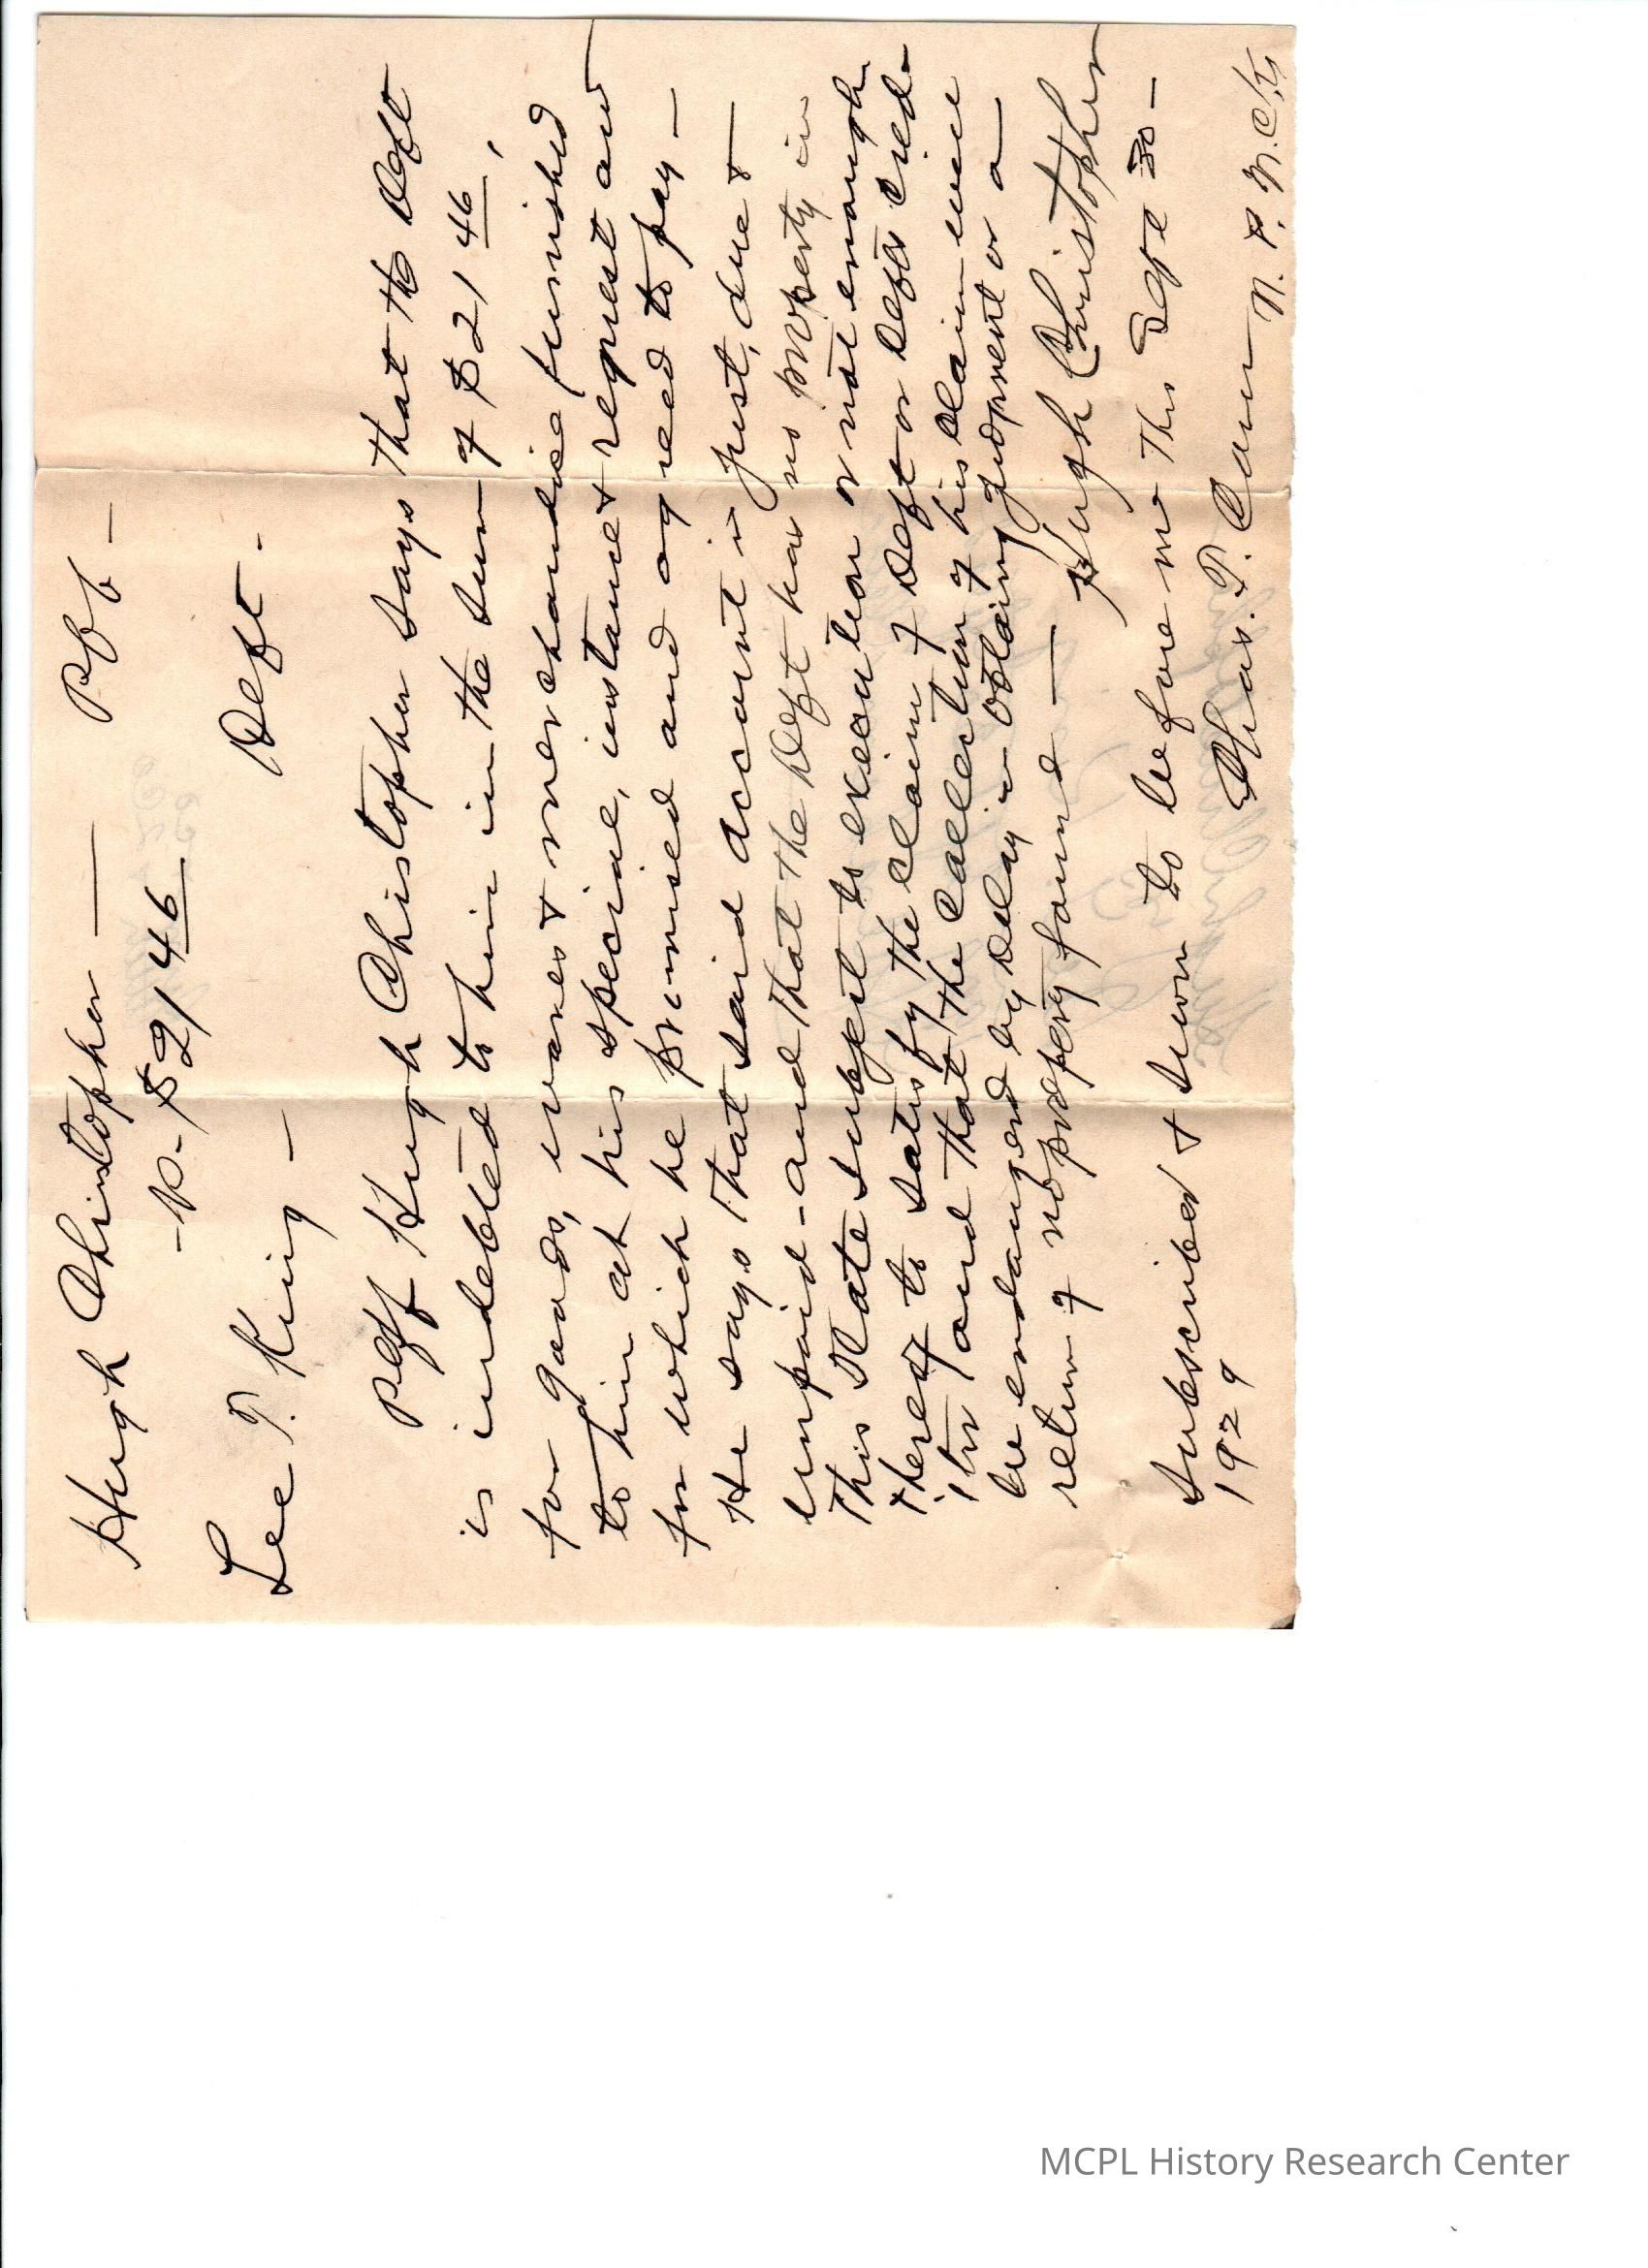 Hugh Christopher — Plf —
-v- $21 46
Lee T. King — Deft -
Plff Hugh Christopher says that the Deft
is indebted to him in the sum of $21 46,
for goods, wares & merchandise furnished
to him at his special, instance & request and
for which he promised and agreed to pay —
He says that said account is just, due &
unpaid - and that the Deft has no property in
this State subject to execution or not enough
thereof to satisfy the claim of Deft or Defts
and that the collection of his claim will
be endangered by delay in obtaing judgment or a
return of no property found —
Hugh Christopher
Subscribed & sworn to before me this Sept 30 —
1929
Chas. T. Cain
N. P. M. C. Ky
MCPL History Research Center